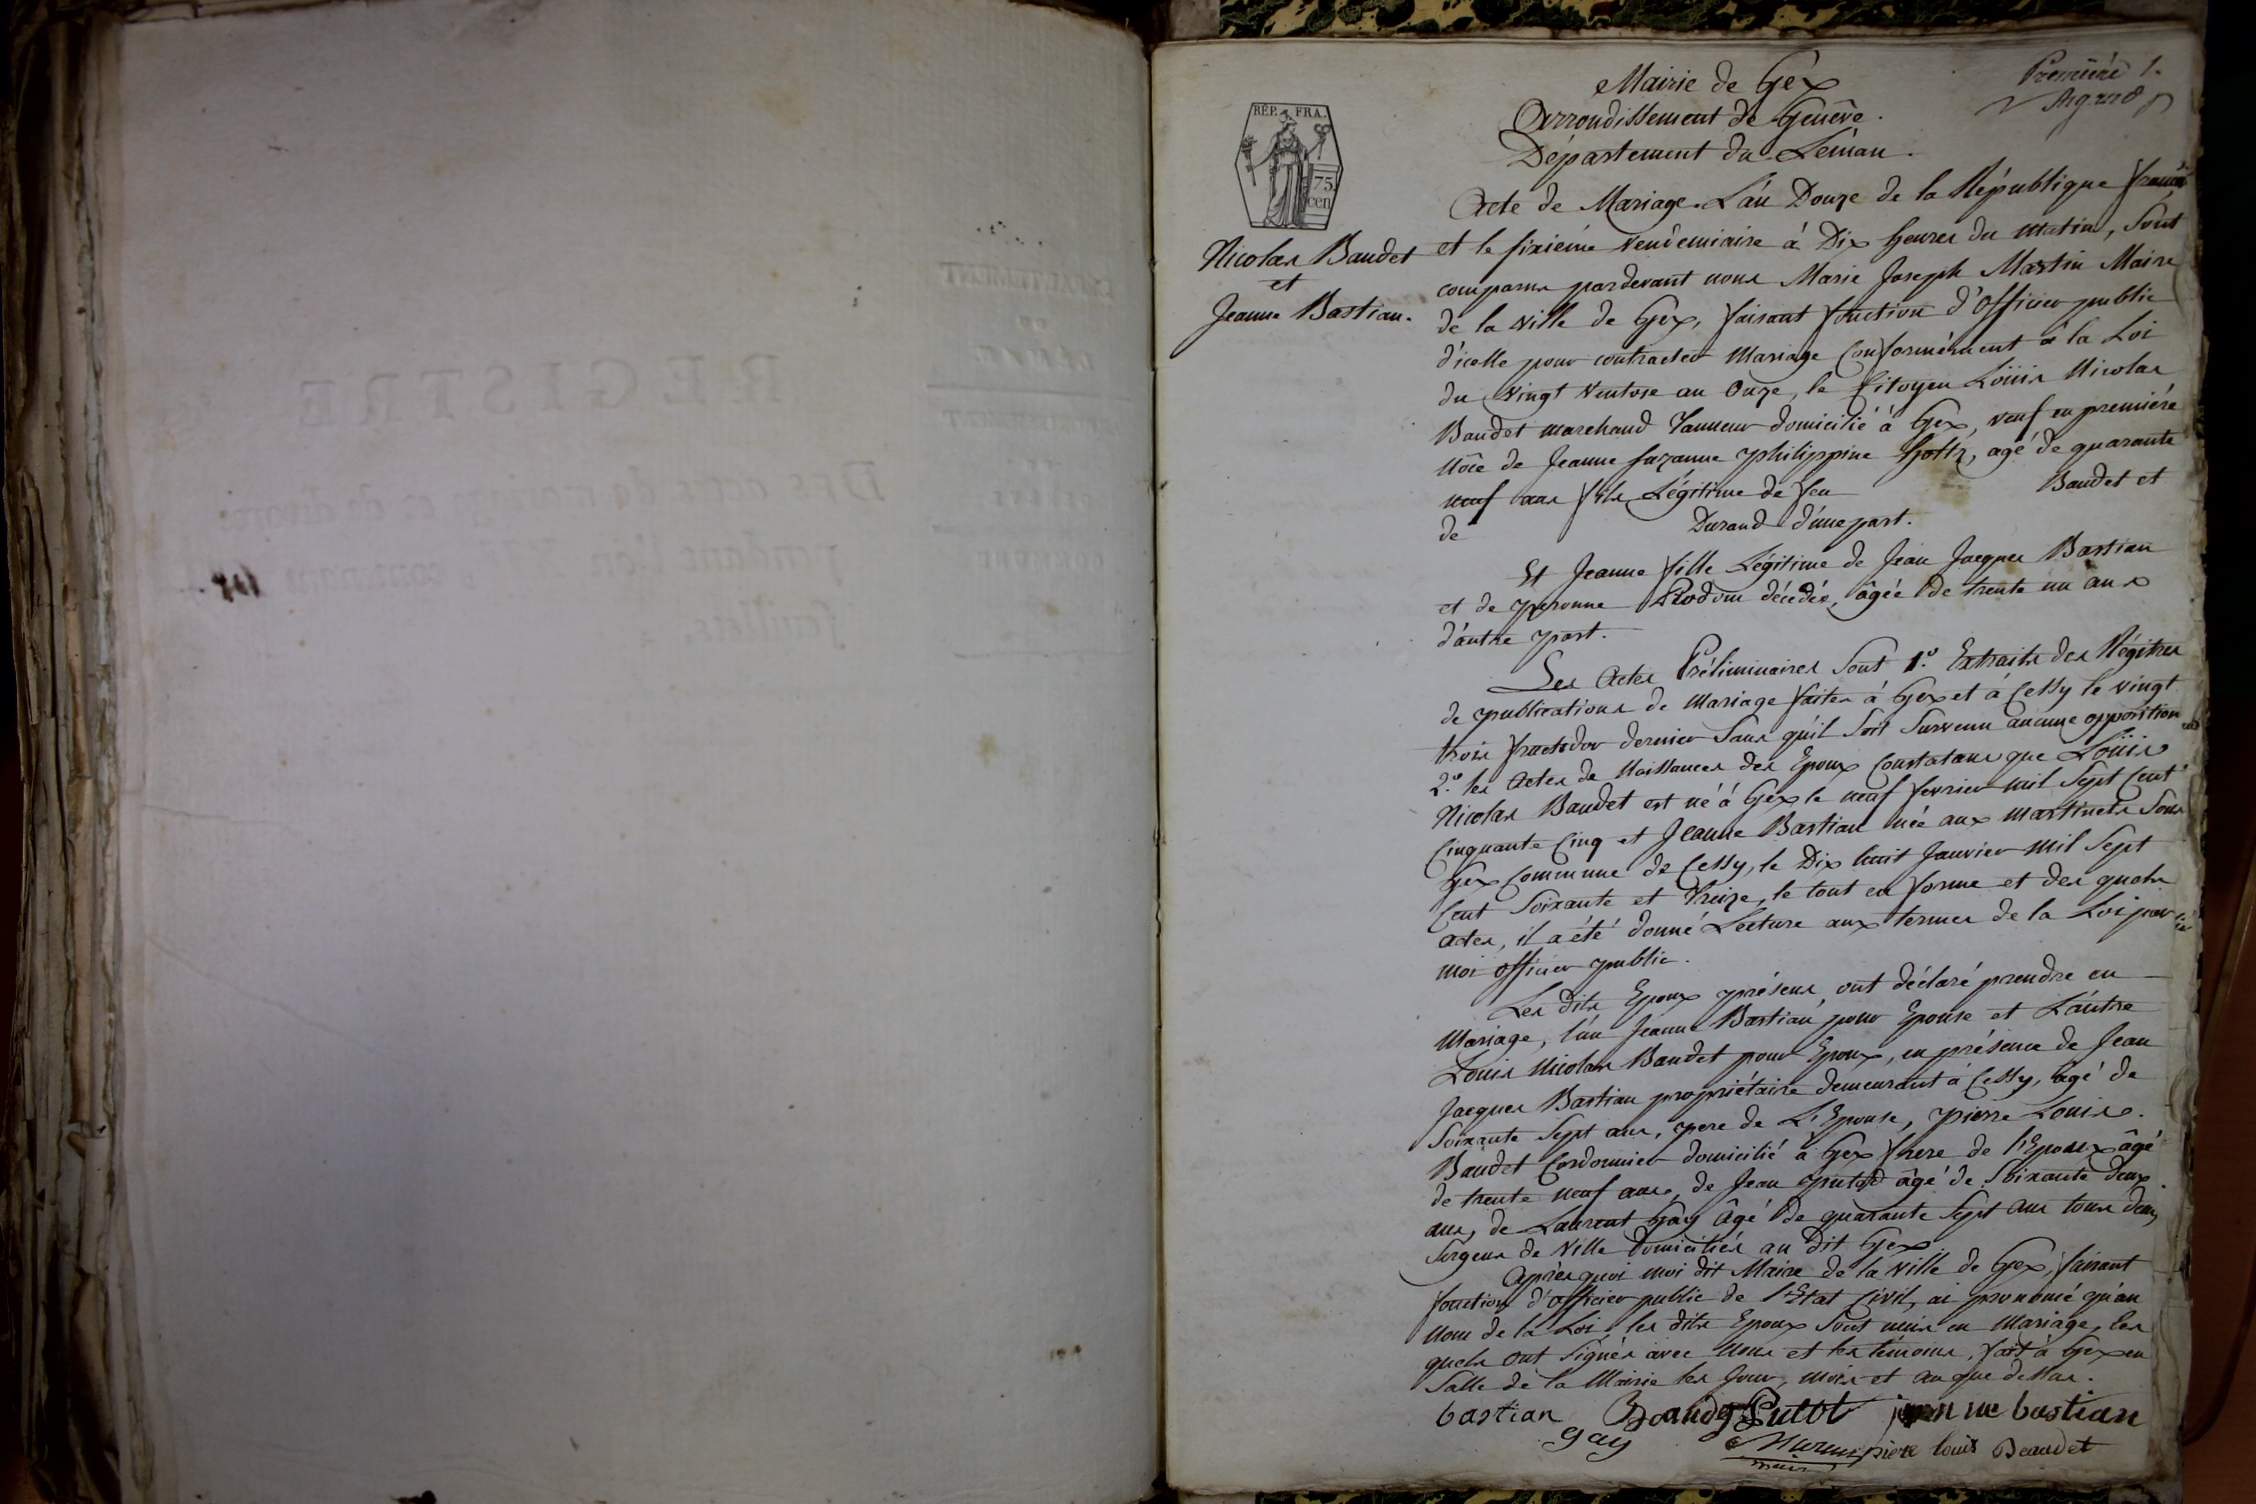 Première 1.
Mairie de Gex
Arrondissement de Genève.
Département du Léman.
RÉP. FRA.
75
cen
Nicolas Baudet
et
Jeanne Bastian.
Acte de Mariage. L'an Douze de la République
et le sixième vendemiaire à Dix heures du matin, Sont
comparus pardevant nous Marie Joseph Martin Maire
de la ville de Gex, faisant fonction d'officier public
d'icelle pour contracter Mariage Conformément à la Loi
du vingt Ventose an Onze, le Citoyen Loüis Nicolas
Baudet marchand Tanneur domicilié à Gex, veuf en premiére
Nôce de Jeanne Suzanne philippine agé de quarante
neuf ans fils Légitime de feu Baudet et
de Durand d'une part.
Et Jeanne fille Légitime de Jean Jacques Bastian
et de peronne Prodom décédée, âgée de trente un ans
d'autre part.
Les Actes Préliminaires Sont 1.º Extraits des Régitres
de publications de Mariage faites à Gex et à Cessy le vingt
trois fructidor dernier Sans qu'il Soit Survenu aucune opposition
2.º les Actes de Naissances des Epoux Constatans que Loüis
Nicolas Baudet est né à Gex le neuf fevrier mil Sept Cent
Cinquante Cinq et Jeanne Bastian née aux martinets Sous
Gex Commune de Cessy, le Dix huit Janvier Mil Sept
Cent Soixante et Treize, le tout en forme et des quels
actes, il a été donné Lecture aux termes de la Loi par
moi officier public.
Les dits Epoux présens, ont déclaré prendre en
Mariage, l'un Jeanne Bastian pour Epouse et L'autre
Louis Nicolas Baudet pour Epoux, en présence de Jean
Jacques Bastian propriétaire demeurant à Cessy, âgé de
Soixante Sept ans, pere de L'Epouse, pierre Louis
Baudet Cordonnier domicilié à Gex frere de l'Epoux âgé
de trente neuf ans, de Jean putod âgé de Soixante deux
ans, de Laurent Gay âgé de quarante Sept ans tous deux
Sergens de Ville Domiciliés au Dit Gex
Après quoi moi dit Maire de la ville de Gex, faisant
fonction d'officier public de l'Etat Civil, ai prononcé qu'au
nom de la Loi, les dits Epoux Sont unis en Mariage, les
quels ont Signés avec Nous et les témoins, fait à Gex en
Salle de la Mairie les Jour, mois et an que dessus.
bastian Baudet jeanne bastian
gay pierre louis Beaudet
maire